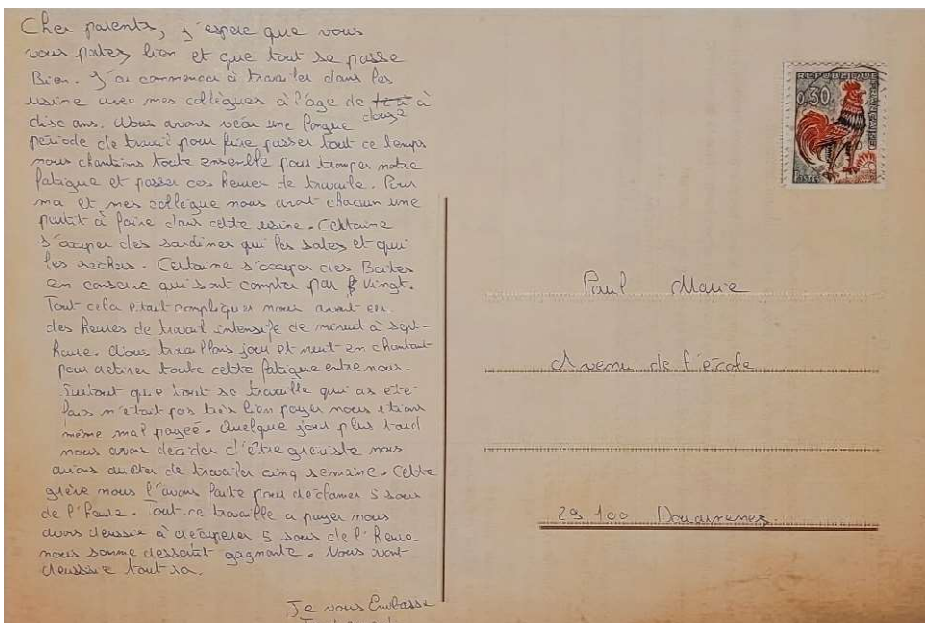 Cher parents, j'espere que vous
vous portez bien et que tout se passe
Bien. J'ai commencer à travailer dans les
usine avec mes collègues à l'age de à
disc ans. Nous avons vécu une longue douze
période de travail pour faire passer tout ce temps
nous chantions toute ensemble pour tromper notre
fatigue et passer ces heures de travaile. Pour
ma et mes collègue nous avait chacun une
partit à faire dans cette usine. Certaine
s'occuper des sardines qui les sales et qui
les séchers. Certaine s'occuper des Boites
en conserve qui sont compter par vingt.
Tout cela était compliquer nous avont eu
des heures de travail intensife de minuit à sept
heure. Nous travaillons jour et nuit en chantant
pour retirer toute cette fatigue entre nous.
Surtout que tout se travaille qui as été
fais n'était pas très bien payer nous étions
même mal payée. Quelque jours plus tard
nous avons décider d'être greviste nous
avions arrêter de travailer cinq semaine. Cette
grève nous l'avons faite pour déclamer 5 sous
de l'heure. Tout ce travaille a payer nous
avons réussie à récupérer 5 sous de l'heure
nous somme ressortit gagnante. Nous avont
réussie tout sa.
Je vous Embrasse
REPUBLIQUE FRANCAISE
0,30
POSTES
Paul Marie
Avenu de l'école
29 100 Douarnenez